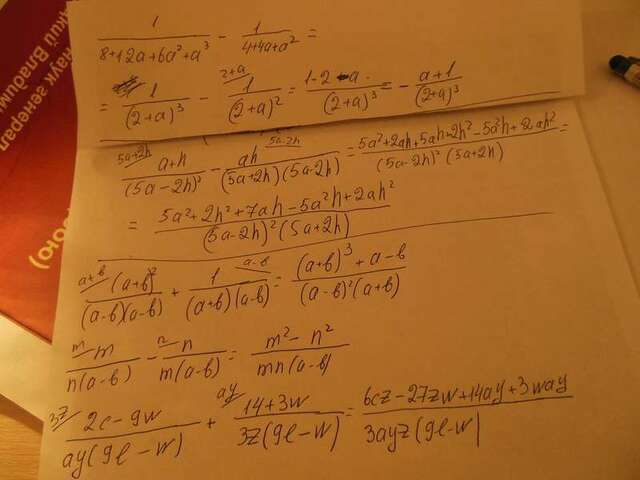 1/(8+12a+6a²+a³) - 1/(4+4a+a²) =
= 1/(2+a)³ - 2+a 1/(2+a)² = (1-2-a)/(2+a)³ = - (a+1)/(2+a)³
5a+2h (a+h)/(5a-2h)² - 5a-2h ah/((5a+2h)(5a-2h)) = (5a²+2ah+5ah+2h²-5a²h+2ah²)/((5a-2h)²(5a+2h)) =
= (5a²+2h²+7ah-5a²h+2ah²)/((5a-2h)²(5a+2h))
a+b (a+b)²/((a-b)(a-b)) + a-b 1/((a+b)(a-b)) = ((a+b)³+a-b)/((a-b)²(a+b))
m m/(n(a-b)) - n n/(m(a-b)) = (m²-n²)/(mn(a-b))
3z (2c-9w)/(ay(9l-w)) + ay (14+3w)/(3z(9l-w)) = (6cz-27zw+14ay+3way)/(3ayz(9l-w)
наук
генерал
Влади